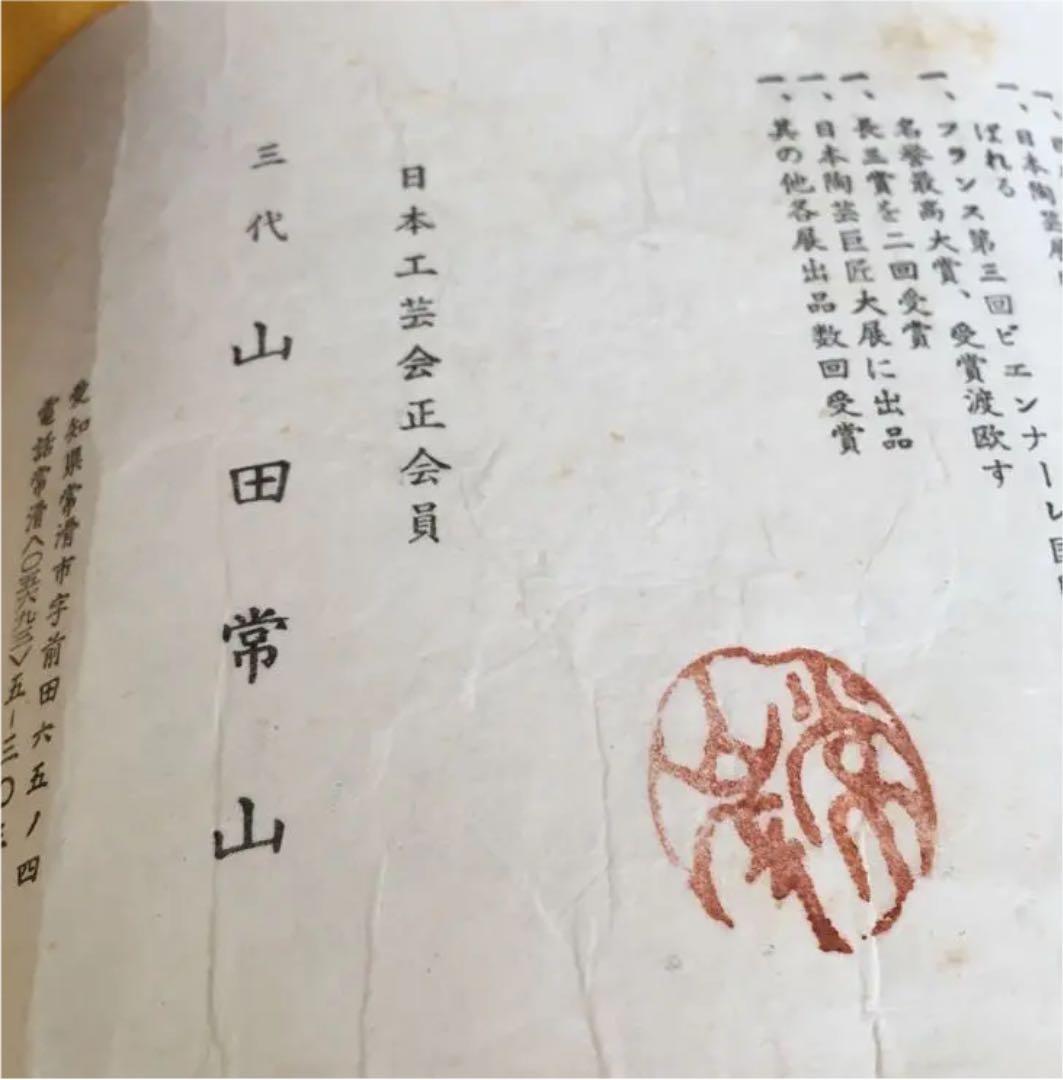 一、日本陶芸展
ばれる
一、フランス第三回ビエンナーレ国
名誉最高大賞、受賞渡欧す
一、長三賞を二回受賞
一、日本陶芸巨匠大展に出品
一、其の他各展出品数回受賞
日本工芸会正会員
三代 山田常山
愛知県常滑市字前田六五ノ四
電話常滑〈〇五六九三〉五ー三〇